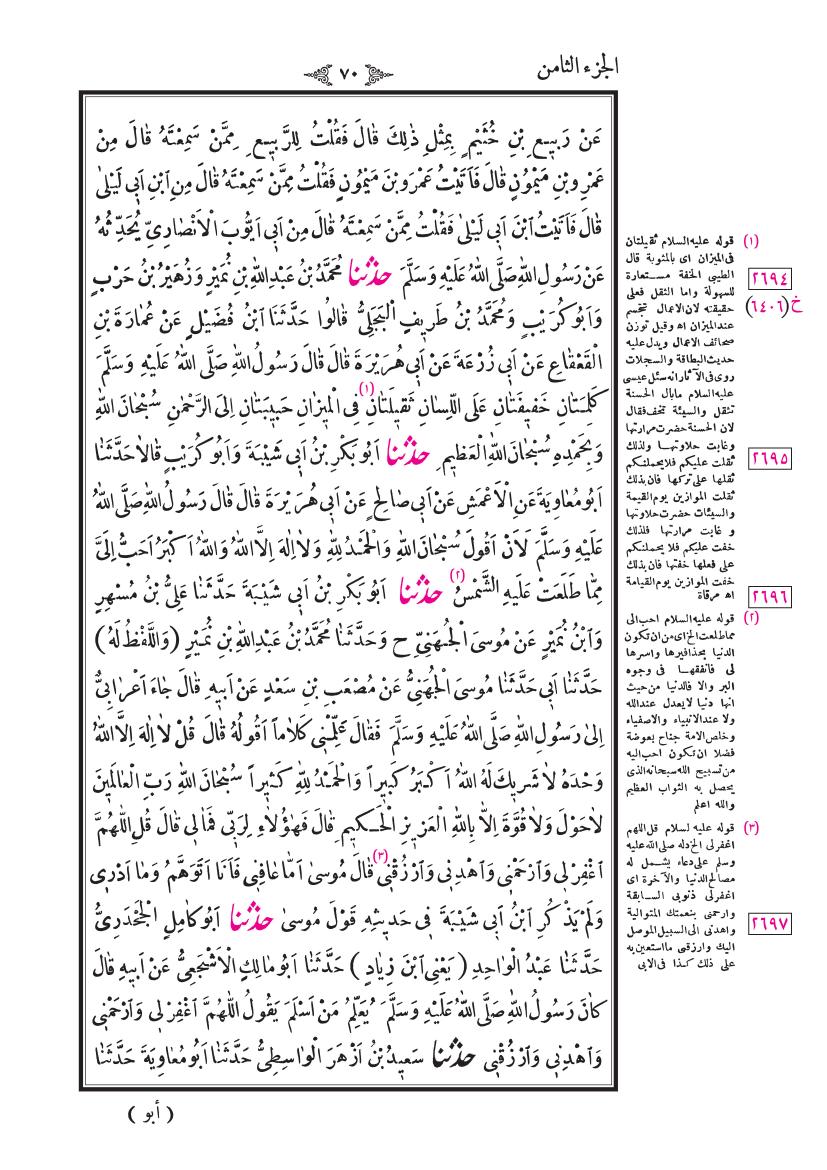 الجزء الثامن
٧٠
عَنْ رَبِيعِ بْنِ خُثَيْمٍ بِمِثْلِ ذٰلِكَ قَالَ فَقُلْتُ لِلرَّبِيعِ مِمَّنْ سَمِعْتَهُ قَالَ مِنْ
عَمْرِو بْنِ مَيْمُونٍ قَالَ فَأَتَيْتُ عَمْرَو بْنَ مَيْمُونٍ فَقُلْتُ مِمَّنْ سَمِعْتَهُ قَالَ مِنِ ابْنِ أَبِي لَيْلىٰ
قَالَ فَأَتَيْتُ ابْنَ أَبِي لَيْلىٰ فَقُلْتُ مِمَّنْ سَمِعْتَهُ قَالَ مِنْ أَبِي أَيُّوبَ الْأَنْصَارِيِّ يُحَدِّثُهُ
عَنْ رَسُولِ اللهِ صَلَّى اللهُ عَلَيْهِ وَسَلَّمَ حَدَّثَنَا مُحَمَّدُ بْنُ عَبْدِ اللهِ بْنِ نُمَيْرٍ وَزُهَيْرُ بْنُ حَرْبٍ
وَأَبُو كُرَيْبٍ وَمُحَمَّدُ بْنُ طَرِيفٍ الْبَجَلِيُّ قَالُوا حَدَّثَنَا ابْنُ فُضَيْلٍ عَنْ عُمَارَةَ بْنِ
الْقَعْقَاعِ عَنْ أَبِي زُرْعَةَ عَنْ أَبِي هُرَيْرَةَ قَالَ قَالَ رَسُولُ اللهِ صَلَّى اللهُ عَلَيْهِ وَسَلَّمَ
كَلِمَتَانِ خَفِيفَتَانِ عَلَى اللِّسَانِ ثَقِيلَتَانِ(١) فِي الْمِيزَانِ حَبِيبَتَانِ إِلَى الرَّحْمٰنِ سُبْحَانَ اللهِ
وَبِحَمْدِهِ سُبْحَانَ اللهِ الْعَظِيمِ حَدَّثَنَا أَبُو بَكْرِ بْنُ أَبِي شَيْبَةَ وَأَبُو كُرَيْبٍ قَالَا حَدَّثَنَا
أَبُو مُعَاوِيَةَ عَنِ الْأَعْمَشِ عَنْ أَبِي صَالِحٍ عَنْ أَبِي هُرَيْرَةَ قَالَ قَالَ رَسُولُ اللهِ صَلَّى اللهُ
عَلَيْهِ وَسَلَّمَ لَأَنْ أَقُولَ سُبْحَانَ اللهِ وَالْحَمْدُ لِلّٰهِ وَلَا إِلٰهَ إِلَّا اللهُ وَاللهُ أَكْبَرُ أَحَبُّ إِلَيَّ
مِمَّا طَلَعَتْ عَلَيْهِ الشَّمْسُ(٢) حَدَّثَنَا أَبُو بَكْرِ بْنُ أَبِي شَيْبَةَ حَدَّثَنَا عَلِيُّ بْنُ مُسْهِرٍ
وَابْنُ نُمَيْرٍ عَنْ مُوسَى الْجُهَنِيِّ ح وَحَدَّثَنَا مُحَمَّدُ بْنُ عَبْدِ اللهِ بْنِ نُمَيْرٍ (وَاللَّفْظُ لَهُ)
حَدَّثَنَا أَبِي حَدَّثَنَا مُوسَى الْجُهَنِيُّ عَنْ مُصْعَبِ بْنِ سَعْدٍ عَنْ أَبِيهِ قَالَ جَاءَ أَعْرَابِيٌّ
إِلىٰ رَسُولِ اللهِ صَلَّى اللهُ عَلَيْهِ وَسَلَّمَ فَقَالَ عَلِّمْنِي كَلَاماً أَقُولُهُ قَالَ قُلْ لَا إِلٰهَ إِلَّا اللهُ
وَحْدَهُ لَا شَرِيكَ لَهُ اللهُ أَكْبَرُ كَبِيراً وَالْحَمْدُ لِلّٰهِ كَثِيراً سُبْحَانَ اللهِ رَبِّ الْعَالَمِينَ
لَا حَوْلَ وَلَا قُوَّةَ إِلَّا بِاللهِ الْعَزِيزِ الْحَكِيمِ قَالَ فَهٰؤُلَاءِ لِرَبِّي فَمَا لِي قَالَ قُلِ اللّٰهُمَّ
اغْفِرْ لِي وَارْحَمْنِي وَاهْدِنِي وَارْزُقْنِي(٣) قَالَ مُوسىٰ أَمَّا عَافِنِي فَأَنَا أَتَوَهَّمُ وَمَا أَدْرِي
وَلَمْ يَذْكُرِ ابْنُ أَبِي شَيْبَةَ فِي حَدِيثِهِ قَوْلَ مُوسىٰ حَدَّثَنَا أَبُو كَامِلٍ الْجَحْدَرِيُّ
حَدَّثَنَا عَبْدُ الْوَاحِدِ (يَعْنِي ابْنَ زِيَادٍ) حَدَّثَنَا أَبُو مَالِكٍ الْأَشْجَعِيُّ عَنْ أَبِيهِ قَالَ
كَانَ رَسُولُ اللهِ صَلَّى اللهُ عَلَيْهِ وَسَلَّمَ يُعَلِّمُ مَنْ أَسْلَمَ يَقُولُ اللّٰهُمَّ اغْفِرْ لِي وَارْحَمْنِي
وَاهْدِنِي وَارْزُقْنِي حَدَّثَنَا سَعِيدُ بْنُ أَزْهَرَ الْوَاسِطِيُّ حَدَّثَنَا أَبُو مُعَاوِيَةَ حَدَّثَنَا
(١) قوله عليه السلام ثقيلتان
فى الميزان اى بالمثوبة قال
الطيبى الخفة مستعارة
للسهولة واما الثقل فعلى
حقيقته لان الاعمال تتجسم
عند الميزان اه وقيل توزن
صحائف الاعمال ويدل عليه
حديث البطاقة والسجلات
روى فى الآثار انه سئل عيسى
عليه السلام مابال الحسنة
تثقل والسيئة تخف فقال
لان الحسنة حضرت مرارتها
وغابت حلاوتها ولذلك
ثقلت عليكم فلا يحملنكم
ثقلها على تركها فان بذلك
ثقلت الموازين يوم القيمة
والسيئات حضرت حلاوتها
و غابت مرارتها فلذلك
خفت عليكم فلا يحملنكم
على فعلها خفتها فان بذلك
خفت الموازين يوم القيامة
اه مرقاة
(٢) قوله عليه السلام احب الى
مما طلعت الخ اى من ان تكون
الدنيا بحذافيرها واسرها
لى فانفقها فى وجوه
البر والا فالدنيا من حيث
انها دنيا لا يعدل عند الله
ولا عند الانبياء والاصفياء
وخلص الامة جناح بعوضة
فضلا ان تكون احب اليه
من تسبيح الله سبحانه الذى
يحصل به الثواب العظيم
والله اعلم
(٣) قوله عليه لسلام قل اللهم
اغفر لى الخ دله صلى الله عليه
وسلم على دعاء يشمل له
مصالح الدنيا والآخرة اى
اغفر لى ذنوبى السابقة
وارحمنى بنعمتك المتوالية
واهدنى الى السبيل الموصل
اليك وارزقنى ما استعين به
على ذلك كذا فى الابى
٢٦٩٤
خ (٦٤٠٦)
٢٦٩٥
٢٦٩٦
٢٦٩٧
( أبو )